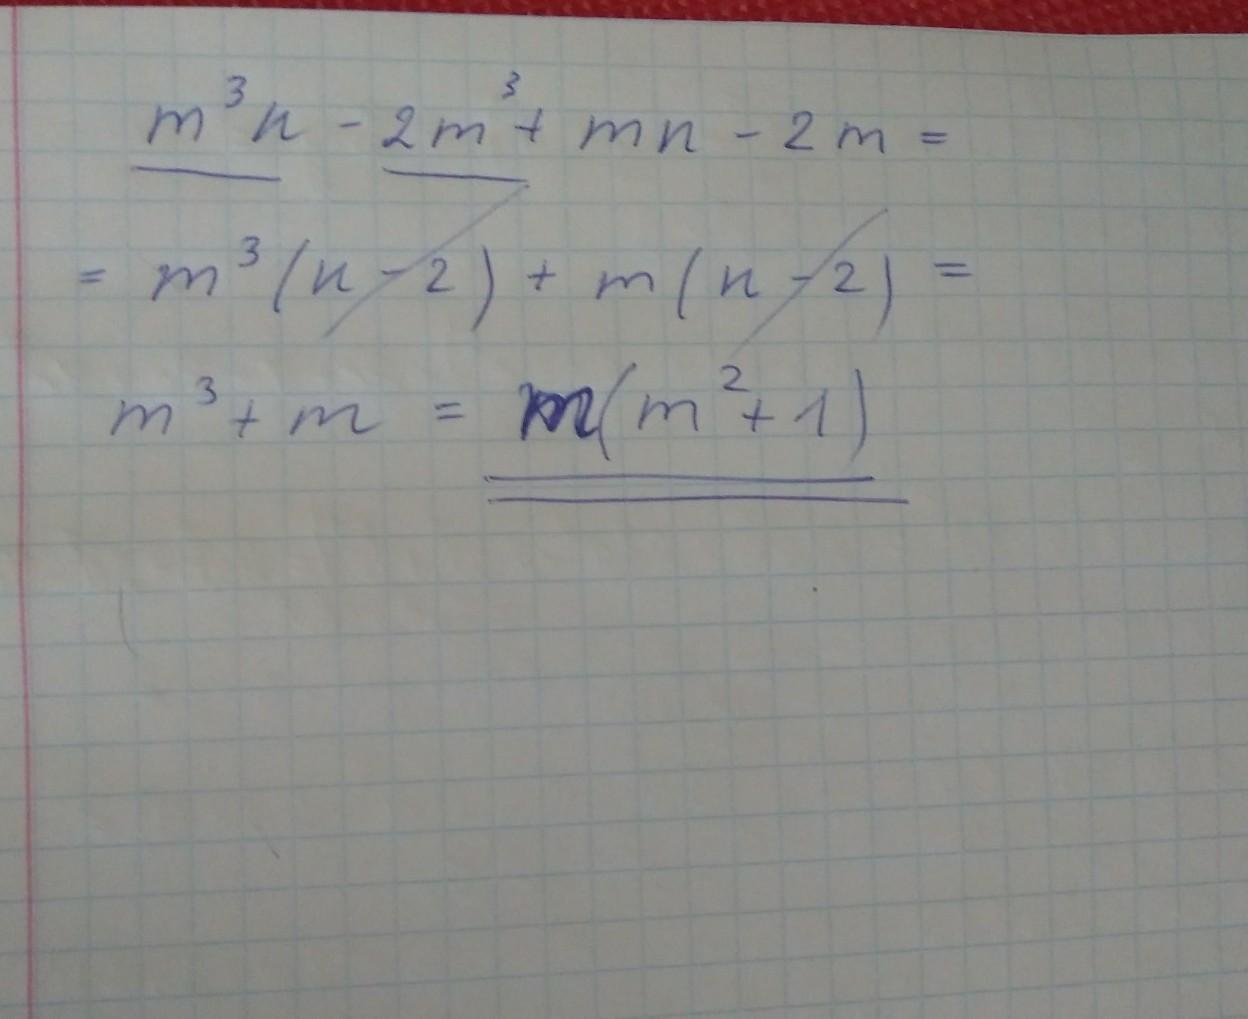 m³n - 2m³ + mn - 2m =
= m³(n - 2) + m(n - 2) =
m³ + m = m(m² + 1)